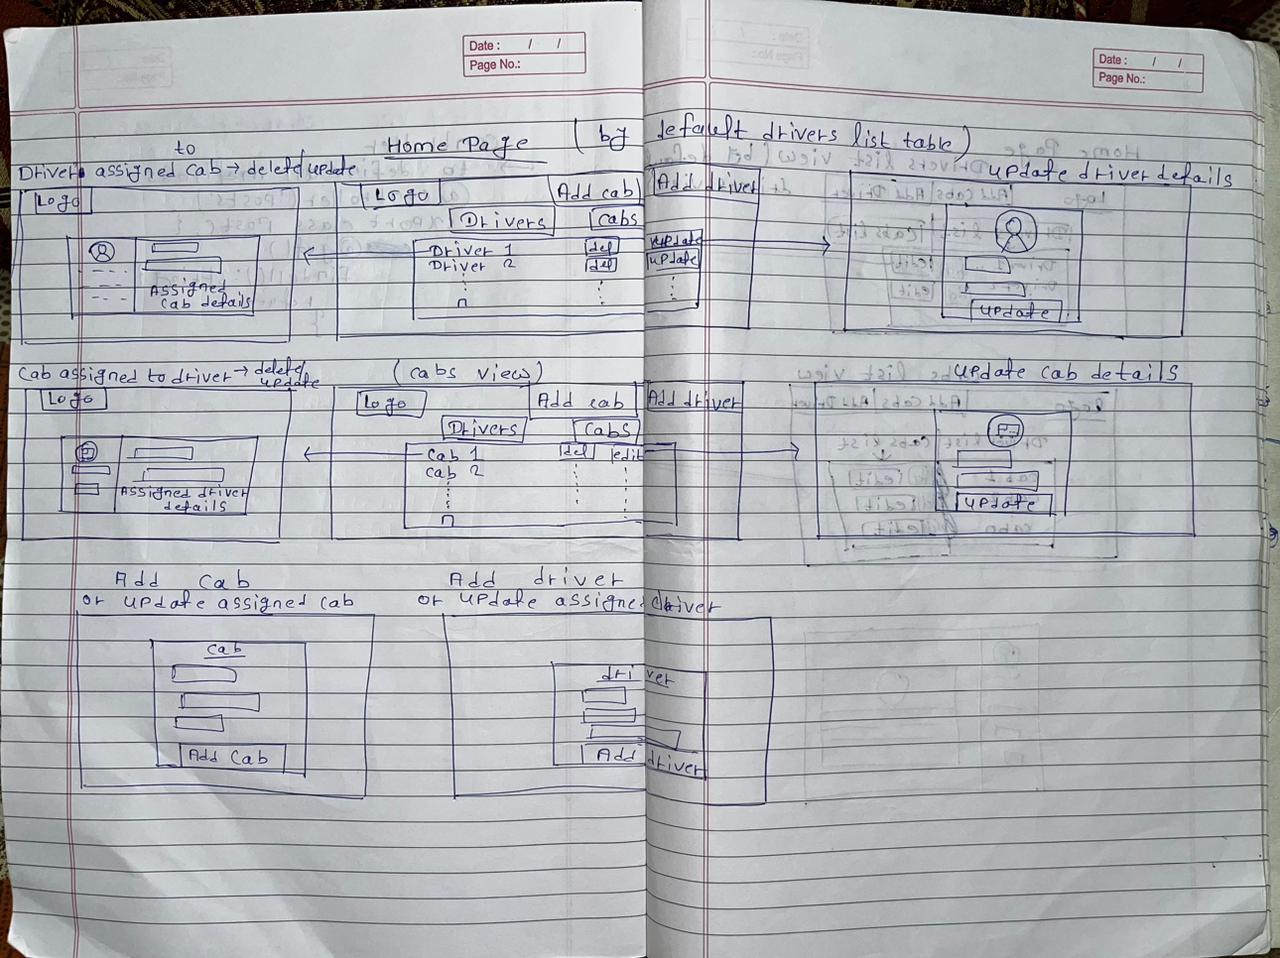 Date : / /
Page No.:
Date : / /
Page No.:
Home Page (by default drivers list table)
to
Driver assigned cab → delete/update
Logo
Assigned
cab details
Logo
Add cab
Add driver
Drivers
cabs
Driver 1 del update
Driver 2 del update
n
update driver details
update
Cab assigned to driver → delete/
update
Logo
Assigned driver
details
(cabs view)
Logo
Add cab
Add driver
Drivers
Cabs
Cab 1 del edit
Cab 2
n
update cab details
update
Add Cab
or update assigned cab
cab
Add Cab
Add driver
or update assigned driver
driver
Add driver